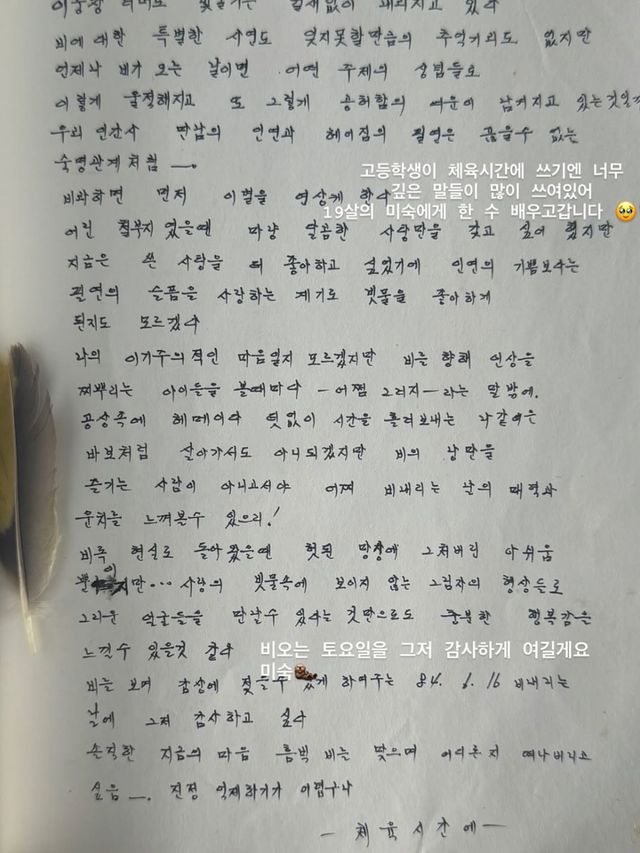 비에 대한 특별한 사연도 잊지못할만큼의 추억거리도 없지만
언제나 비가 오는 날이면 어떤 주제의 상념들로
이렇게 울적해지고 또 그렇게 공허함의 여운이 남겨지고 있는것일까
우리 인간사 만남의 인연과 헤어짐의 필연은 끊을수 없는
숙명관계처럼 —.
고등학생이 체육시간에 쓰기엔 너무
깊은 말들이 많이 쓰여있어
19살의 미숙에게 한 수 배우고갑니다 🥹
비와하면 먼저 이별을 연상케 한다
어린 철부지 였을때 마냥 달콤한 사랑만을 갖고 싶어 했지만
지금은 쓴 사랑을 더 좋아하고 싶었기에 인연의 기쁨보다는
필연의 슬픔을 사랑하는 계기로 빗물을 좋아하게
된지도 모르겠다
나의 이기주의적인 마음일지 모르겠지만 비를 향해 인상을
찌뿌리는 아이들을 볼때마다 —어쩜 그러지— 라는 말 밖에.
공상속에 헤메이다 덧없이 시간을 흘려보내는 나같은
바보처럼 살아가서도 아니되겠지만 비의 낭만을
즐기는 사람이 아니고서야 어찌 비내리는 날의 매력과
운치를 느껴볼수 있으리!
비록 현실로 돌아 왔을땐 헛된 망상에 그쳐버린 아쉬움
이지만... 사랑의 빗물속에 보이지 않는 그림자의 형상들로
그리운 얼굴들을 만날수 있다는 것만으로도 충분한 행복감은
느낄수 있을것 같다
비오는 토요일을 그저 감사하게 여길게요
미숙
비를 보며 감상에 젖을수 있게 하여주는 84. 6. 16 비내리는
날에 그저 감사하고 싶다
솔직한 지금의 마음 흠뻑 비를 맞으며 어디론지 떠나버리고
싶음 —. 진정 억제하기가 어렵구나
— 체육시간에 —